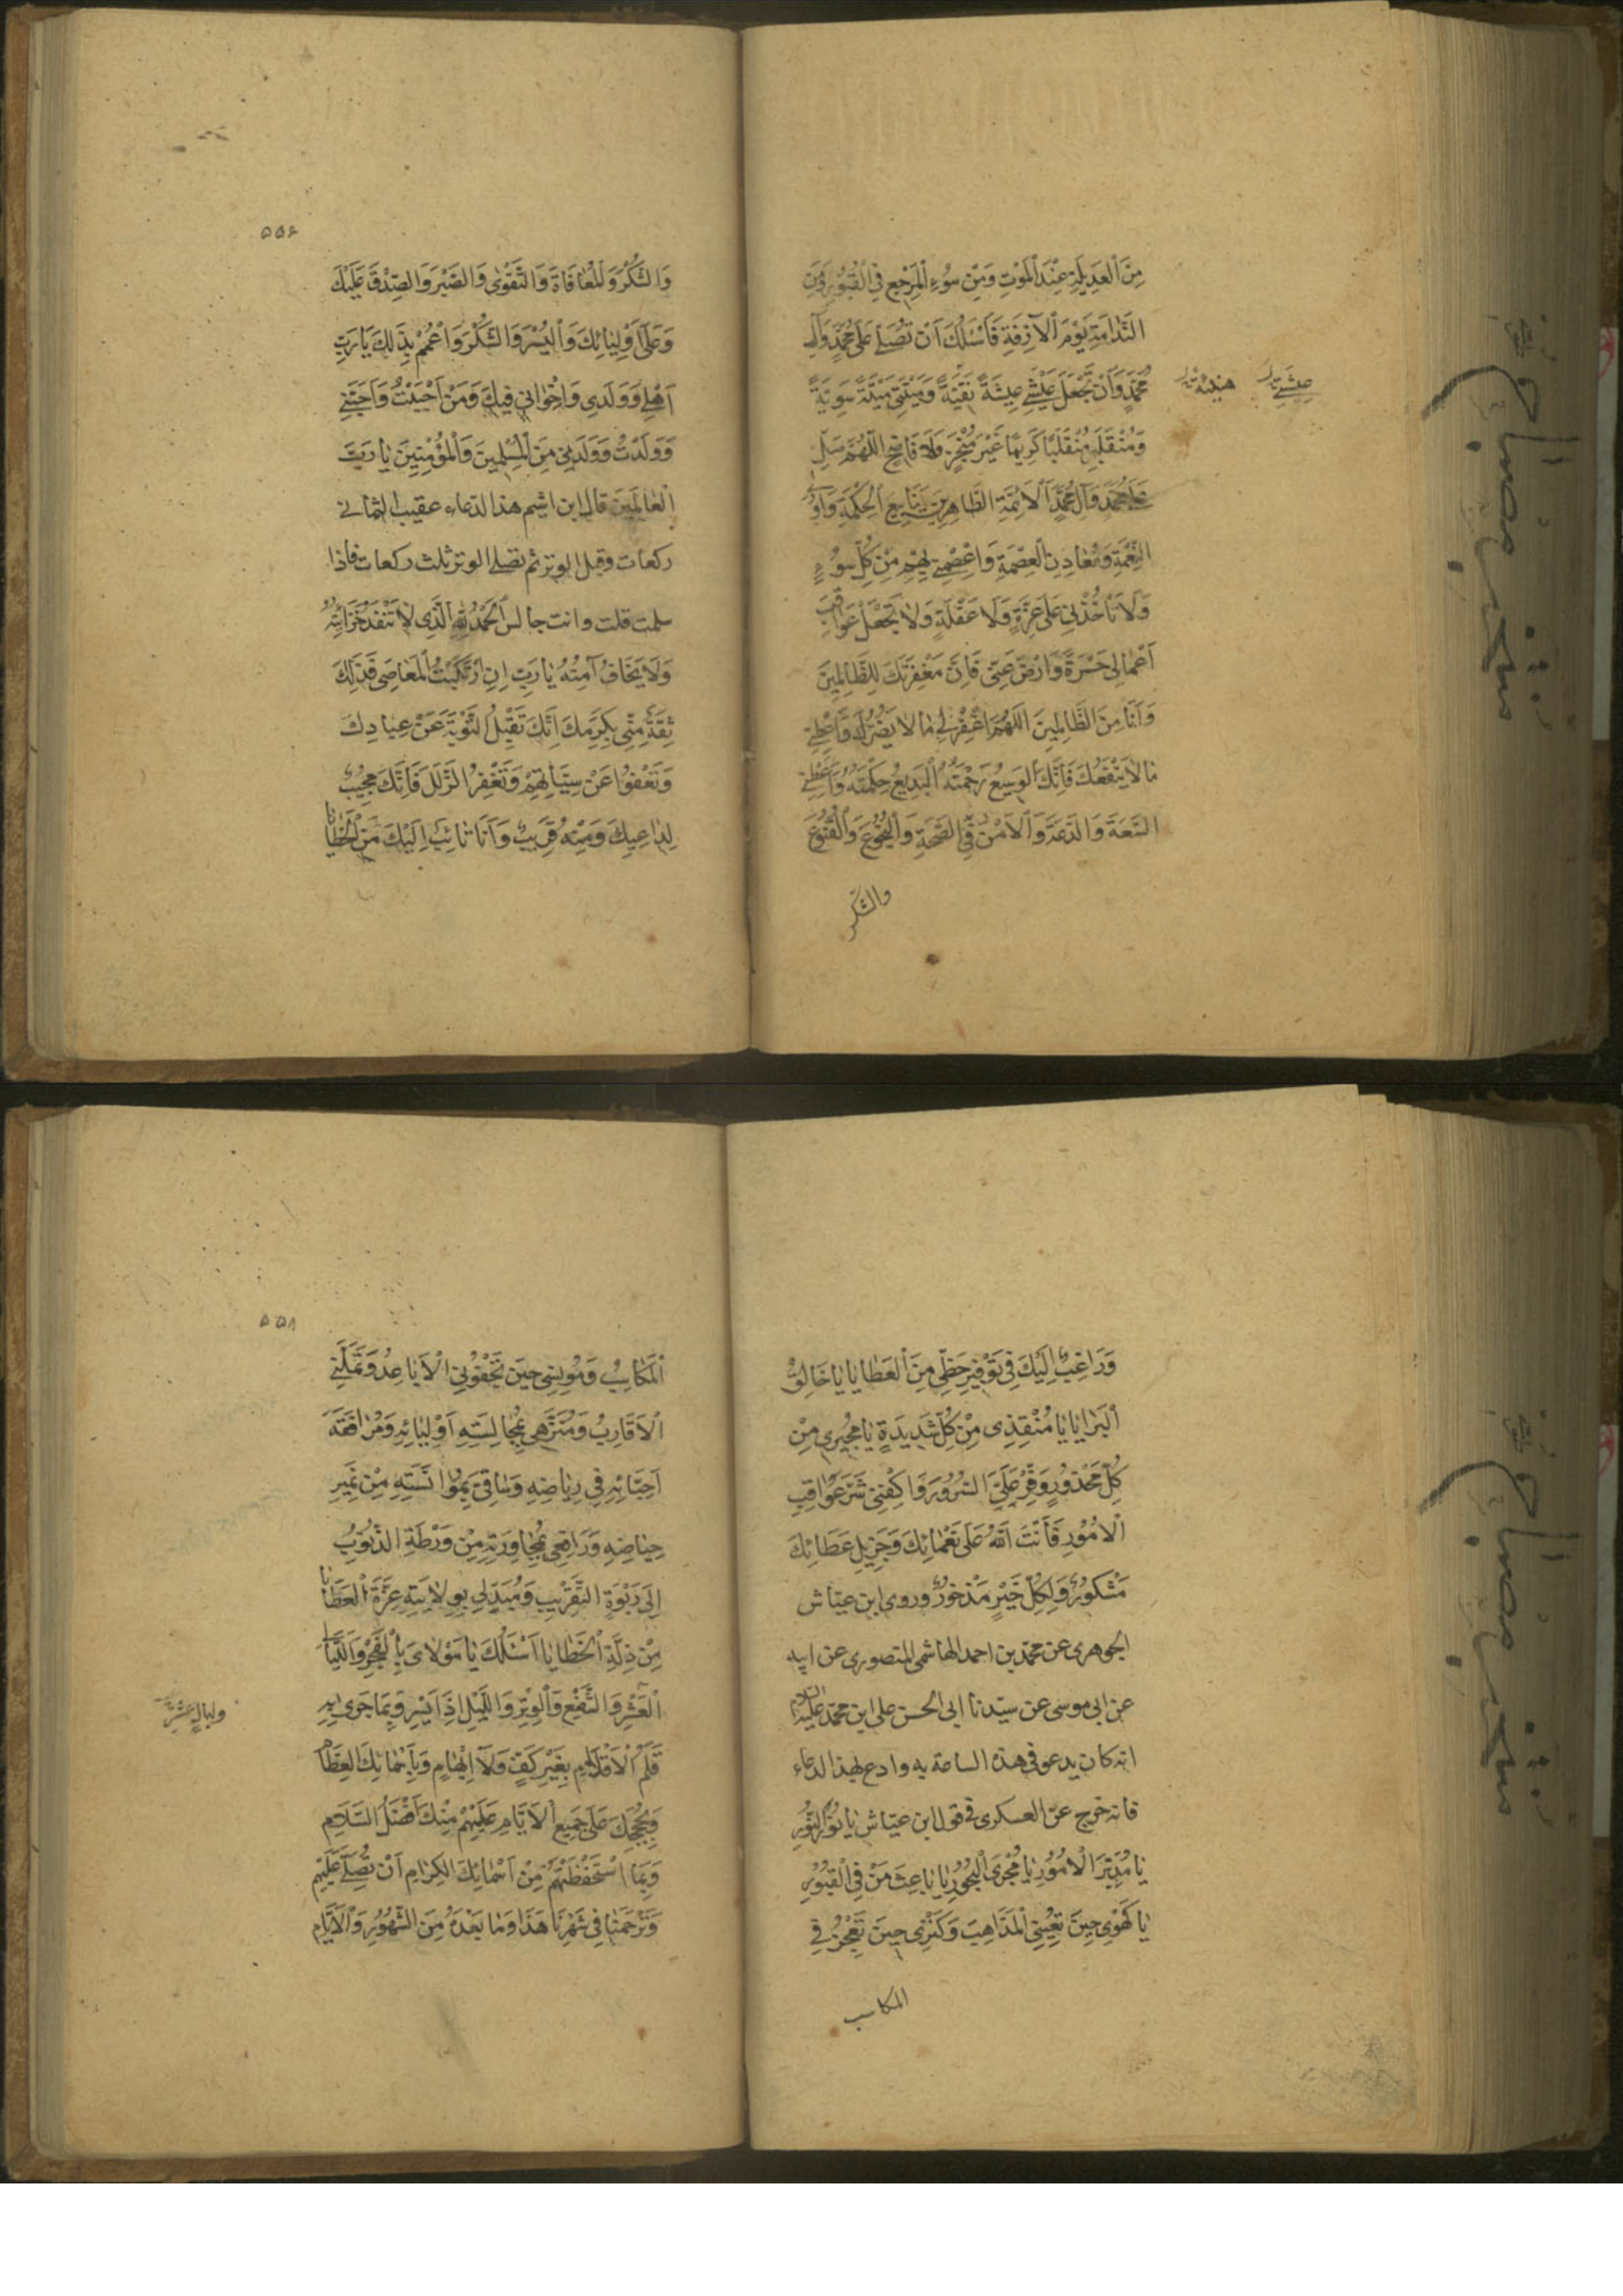 مِنَ الْعَدِيلَةِ عِنْدَ الْمَوْتِ وَمِنْ سُوءِ الْمَرْجِعِ فِي الْقُبُورِ وَمِنَ
النَّدَامَةِ يَوْمَ الْآزِفَةِ فَأَسْئَلُكَ اَنْ تُصَلِّيَ عَلَى مُحَمَّدٍ وَآلِ
مُحَمَّدٍ وَاَنْ تَجْعَلَ عَيْشِي عِيشَةً نَقِيَّةً وَمِيْتَتِي مِيْتَةً سَوِيَّةً
عِيشَتِي
هنيئة
وَمُنْقَلَبِي مُنْقَلَبًا كَرِيمًا غَيْرَ مُخْزٍ وَلَا فَاضِحٍ اَللّٰهُمَّ صَلِّ
عَلَى مُحَمَّدٍ وَآلِ مُحَمَّدٍ اَلْاَئِمَّةِ الطَّاهِرِينَ يَنَابِيعِ الْحِكْمَةِ وَاُولِي
النِّعْمَةِ وَمَعَادِنِ الْعِصْمَةِ وَاعْصِمْنِي بِهِمْ مِنْ كُلِّ سُوءٍ
وَلَا تَأْخُذْنِي عَلَى غِرَّةٍ وَلَا غَفْلَةٍ وَلَا تَجْعَلْ عَوَاقِبَ
اَعْمَالِي حَسْرَةً وَارْضَ عَنِّي فَاِنَّ مَغْفِرَتَكَ لِلظَّالِمِينَ
وَاَنَا مِنَ الظَّالِمِينَ اَللّٰهُمَّ اغْفِرْ لِي مَا لَا يَضُرُّكَ وَاَعْطِنِي
مَا لَا يَنْفَعُكَ فَاِنَّكَ الْوَسِيعُ رَحْمَتُهُ الْبَدِيعُ حِكْمَتُهُ وَاَعْطِنِي
السَّعَةَ وَالدَّعَةَ وَالْاَمْنَ وَالصِّحَّةَ وَالنُّجُوعَ وَالْقُنُوعَ
والشكر
۵۵۶
وَالشُّكْرَ وَالْمُعَافَاةَ وَالتَّقْوٰى وَالصَّبْرَ وَالصِّدْقَ عَلَيْكَ
وَعَلَى اَوْلِيَائِكَ وَالْيُسْرَ وَالشُّكْرَ وَاعْمُمْ بِذٰلِكَ يَا رَبِّ
اَهْلِي وَوَلَدِي وَاِخْوَانِي فِيكَ وَمَنْ اَحْبَبْتُ وَاَحَبَّنِي
وَوَلَدْتُ وَوَلَدَنِي مِنَ الْمُسْلِمِينَ وَالْمُؤْمِنِينَ يَا رَبَّ
الْعَالَمِينَ قال ابن اشيم هذا الدعاء عقيب الثماني
ركعات وقبل الوتر ثم تصلى الوتر ثلث ركعات فاذا
سلمت قلت وانت جالس اَلْحَمْدُ لِلّٰهِ الَّذِي لَا تَنْفَدُ خَزَائِنُهُ
وَلَا يَخَافُ آمِنُهُ يَا رَبِّ اِنِ ارْتَكَبْتُ الْمَعَاصِيَ فَذٰلِكَ
ثِقَةٌ مِنِّي بِكَرَمِكَ اِنَّكَ تَقْبَلُ التَّوْبَةَ عَنْ عِبَادِكَ
وَتَعْفُوا عَنْ سَيِّئَاتِهِمْ وَتَغْفِرُ الزَّلَلَ فَاِنَّكَ مُجِيبٌ
لِدَاعِيكَ وَمِنْهُ قَرِيبٌ وَاَنَا تَائِبٌ اِلَيْكَ مِنَ الْخَطَايَا
وَرَاغِبٌ اِلَيْكَ فِي تَوْفِيرِ حَظِّي مِنَ الْعَطَايَا يَا خَالِقَ
الْبَرَايَا يَا مُنْقِذِي مِنْ كُلِّ شَدِيدَةٍ يَا مُجِيرِي مِنْ
كُلِّ مَحْذُورٍ وَفِّرْ عَلَيَّ السُّرُورَ وَاكْفِنِي شَرَّ عَوَاقِبِ
الْاُمُورِ فَاَنْتَ اللّٰهُ عَلَى نَعْمَائِكَ وَجَزِيلِ عَطَائِكَ
مَشْكُورٌ وَلِكُلِّ خَيْرٍ مَذْخُورٌ وروى ابن عياش
الجوهرى عن محمد بن احمد الهاشمى المنصورى عن ابيه
عن ابى موسى عن سيدنا ابى الحسن على ابن محمد عليه السلام
انه كان يدعو فى هذه الساعة به وادع بهذا الدعاء
فانه خرج عن العسكرى فى قول ابن عياش يَا نُورَ النُّورِ
يَا مُدَبِّرَ الْاُمُورِ يَا مُجْرِيَ الْبُحُورِ يَا بَاعِثَ مَنْ فِي الْقُبُورِ
يَا كَهْفِي حِينَ تُعْيِينِي الْمَذَاهِبَ وَكَنْزِي حِينَ تُعْجِزُنِي
المكاسب
۵۵۸
الْمَكَاسِبُ وَمُونِسِي حِينَ تَجْفُونِي الْاَبَاعِدُ وَتَمَلُّنِي
الْاَقَارِبُ وَمُنَزِّهِي بِمُجَالَسَةِ اَوْلِيَائِهِ وَمُرَافَقَةِ
اَحِبَّائِهِ فِي رِيَاضِهِ وَسَاقِيَّ بِمُؤَانَسَتِهِ مِنْ نَمِيرِ
حِيَاضِهِ وَرَافِعِي بِمُجَاوَرَتِهِ مِنْ وَرْطَةِ الذُّنُوبِ
اِلَى رَبْوَةِ التَّقْرِيبِ وَمُبَدِّلِي بِوِلَايَتِهِ عِزَّةَ الْعَطَايَا
مِنْ ذِلَّةِ الْخَطَايَا اَسْئَلُكَ يَا مَوْلَايَ بِالْفَجْرِ وَاللَّيَالِي
الْعَشْرِ وَالشَّفْعِ وَالْوَتْرِ وَاللَّيْلِ اِذَا يَسْرِ وَبِمَا جَرٰى بِهِ
وليالٍ عَشْرٍ
قَلَمُ الْاَقْلَامِ بِغَيْرِ كَفٍّ وَلَا اِبْهَامٍ وَبِاَسْمَائِكَ الْعِظَامِ
وَبِحُجَجِكَ عَلَى جَمِيعِ الْاَنَامِ عَلَيْهِمْ مِنْكَ اَفْضَلُ السَّلَامِ
وَبِمَا اسْتَحْفَظْتَهُمْ مِنْ اَسْمَائِكَ الْكِرَامِ اَنْ تُصَلِّيَ عَلَيْهِمْ
وَتَرْحَمَنَا فِي شَهْرِنَا هٰذَا وَمَا بَعْدَهُ مِنَ الشُّهُورِ وَالْاَيَّامِ